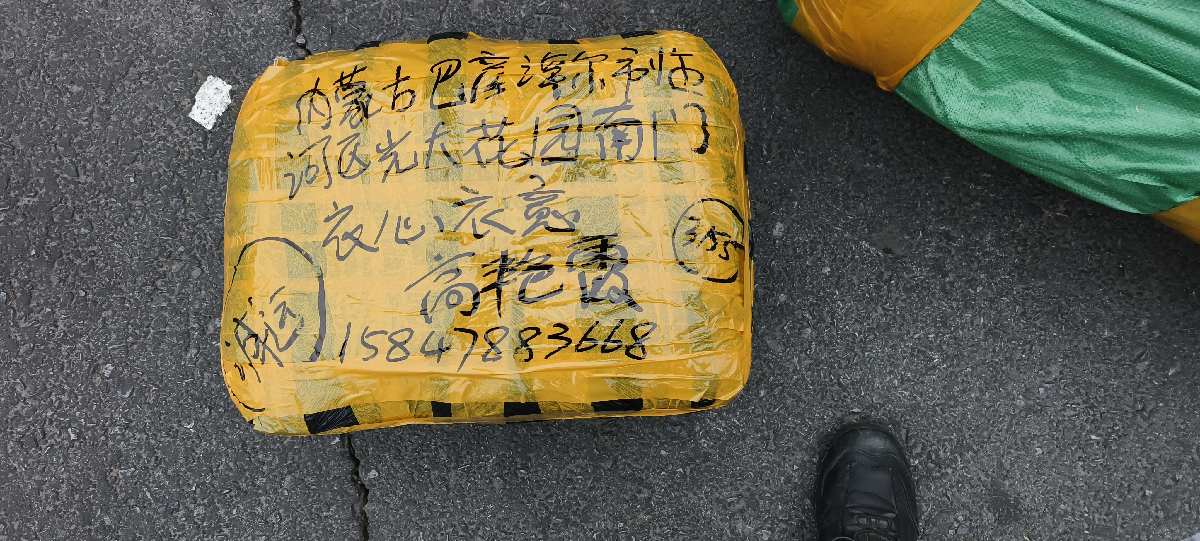 内蒙古巴彦淖尔市临
河区光大花园南门
衣心衣意
高艳霞
15847883668
诚运